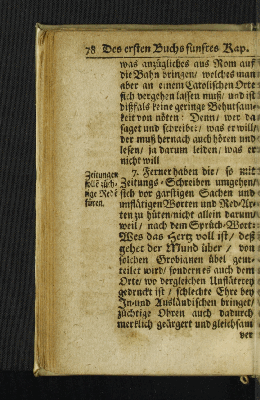 78 Des ersten Buchs fünftes Kap.
was anzügliches aus Rom auf
die Bahn bringen/ welches man
aber an einem Catolischen Orte
sich vergehen lassen muß/ und ist
dißfals keine geringe Behutsam-
keit von nöten: Denn/ wer da
saget und schreibet/ was er will/
der muß hernach auch hören und
lesen/ ja darum leiden/ was er
nicht will
Zeitungen
sollē züch-
tige Red
füren.
7. Ferner haben die/ so mit
Zeitungs-Schreiben umgehen/
sich vor garstigen Sachen und
unflätigen Worten und Red-Ar-
ten zu hüten/nicht allein darum/
weil/ nach dem Sprüch-Wort:
Wes das Hertz voll ist/ deß
gehet der Mund über/ von
solchen Grobianen übel geur-
teilet wird/ sondern es auch dem
Orte/ wo dergleichen Unflätereý
gedruckt ist/ schlechte Ehre bey
In-und Ausländischen bringet/
züchtige Ohren auch dadurch
mercklich geärgert und gleichsam
ver